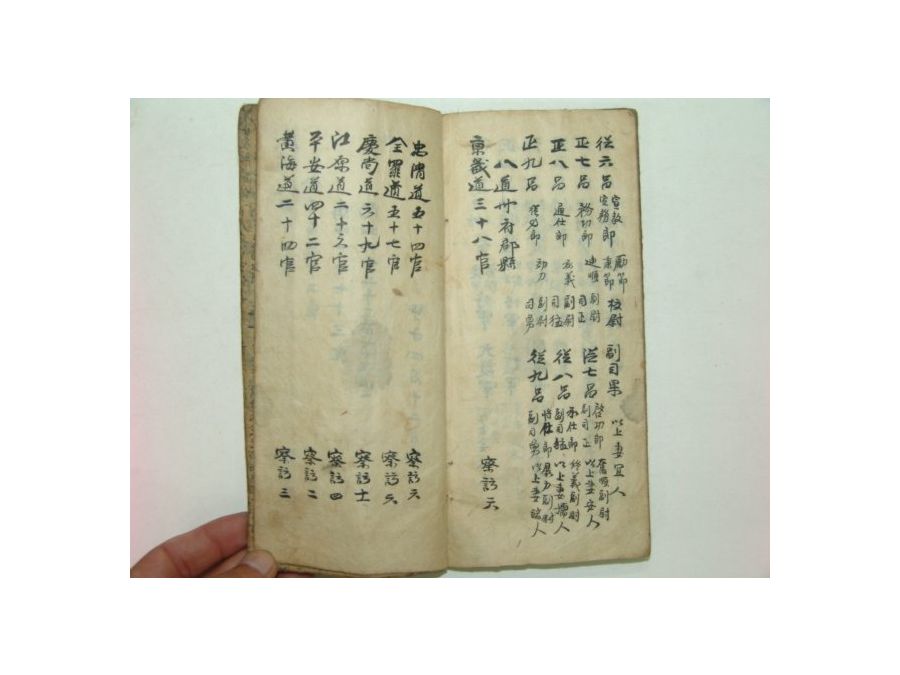 從六品 宣教 宣務郎 勵節 秉節 校尉 副司果 以上妻宜人
正七品 務功郎 迪順副尉 司正 從七品 啓功郎 奮順副尉 副司正 以上妻安人
正八品 通仕郎 承義副尉 司猛 從八品 承仕郎 修義副尉 副司猛 以上妻孺人
正九品 從仕郎 効力副尉 司勇 從九品 將仕郎 展力副尉 副司勇 以上妻孺人
八道州府郡縣
京畿道三十八官 察訪六
忠淸道五十四官 察訪六
全羅道五十七官 察訪六
慶尚道六十九官 察訪十一
江原道二十六官 察訪四
平安道四十二官 察訪二
黃海道二十四官 察訪三